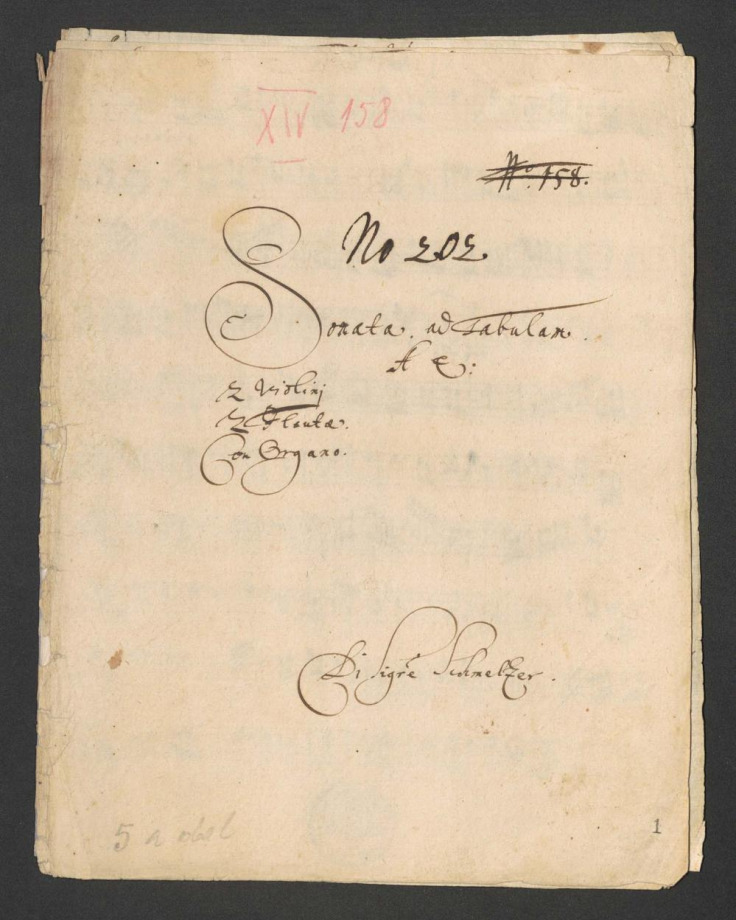 XIV 158
No. 158.
No 202.
Sonata. ad Tabulam.
A
2 Violinj
2 Flautæ.
Con Organo.
Di Sigre Schmeltzer.
5 a obal
1